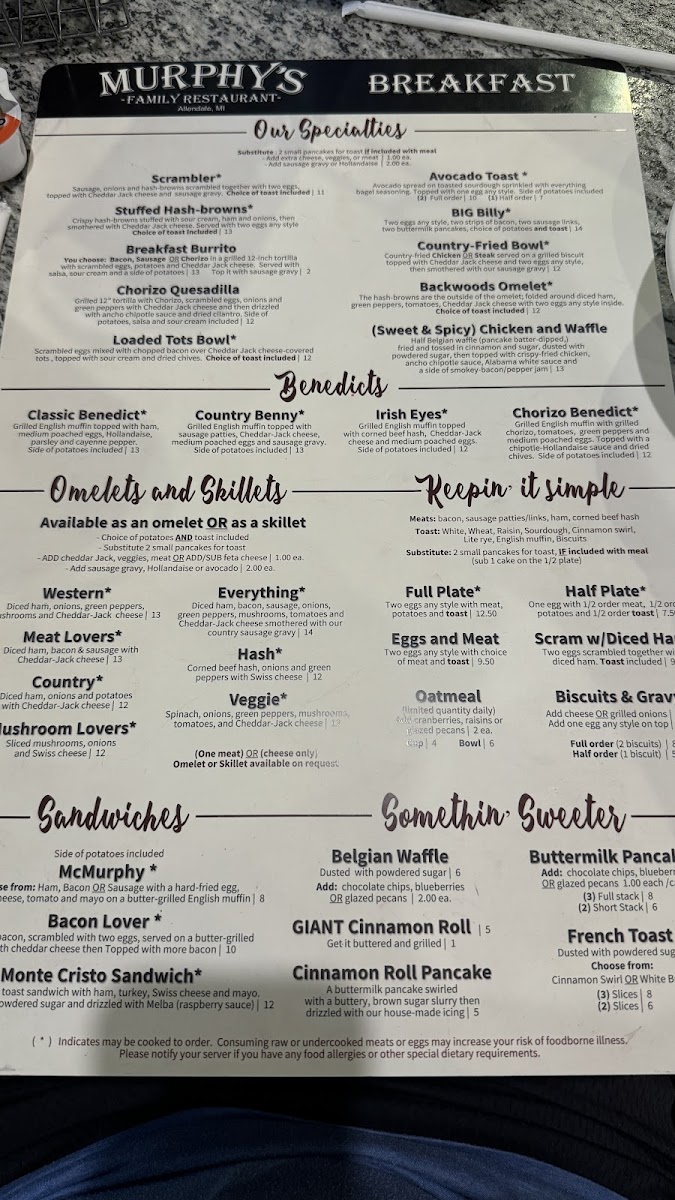 MURPHY'S
-FAMILY RESTAURANT-
Allendale, MI
BREAKFAST
Our Specialties
Substitute: 2 small pancakes for toast if included with meal
- Add extra cheese, veggies, or meat | 1.00 ea.
- Add sausage gravy or Hollandaise | 2.00 ea.
Scrambler*
Sausage, onions and hash-browns scrambled together with two eggs,
topped with Cheddar-Jack cheese and sausage gravy. Choice of toast included | 11
Stuffed Hash-browns*
Crispy hash-browns stuffed with sour cream, ham and onions, then
smothered with Cheddar-Jack cheese. Served with two eggs any style
Choice of toast included | 13
Breakfast Burrito
You choose: Bacon, Sausage OR Cherizo in a grilled 12-inch tortilla
with scrambled eggs, potatoes and Cheddar-Jack cheese. Served with
salsa, sour cream and a side of potatoes | 13 Top it with sausage gravy | 2
Chorizo Quesadilla
Grilled 12" tortilla with Chorizo, scrambled eggs, onions and
green peppers with Cheddar-Jack cheese and then drizzled
with ancho chipotle sauce and dried cilantro. Side of
potatoes, salsa and sour cream included | 12
Loaded Tots Bowl*
Scrambled eggs mixed with chopped bacon over Cheddar Jack cheese-covered
tots, topped with sour cream and dried chives. Choice of toast included | 12
Avocado Toast *
Avocado spread on toasted sourdough sprinkled with everything
bagel seasoning. Topped with one egg any style. Side of potatoes included
(2) Full order | 10 (1) Half order | 7
BIG Billy*
Two eggs any style, two strips of bacon, two sausage links,
two buttermilk pancakes, choice of potatoes and toast | 14
Country-Fried Bowl*
Country-fried Chicken OR Steak served on a grilled biscuit
topped with Cheddar Jack cheese and two eggs any style,
then smothered with our sausage gravy | 12
Backwoods Omelet*
The hash-browns are the outside of the omelet; folded around diced ham,
green peppers, tomatoes, Cheddar Jack cheese with two eggs any style inside.
Choice of toast included | 12
(Sweet & Spicy) Chicken and Waffle
Half Belgian waffle (pancake batter-dipped,)
fried and tossed in cinnamon and sugar, dusted with
powdered sugar, then topped with crispy-fried chicken,
ancho chipotle sauce, Alabama white sauce and
a side of smokey-bacon/pepper jam | 13
Benedicts
Classic Benedict*
Grilled English muffin topped with ham,
medium poached eggs, Hollandaise,
parsley and cayenne pepper.
Side of potatoes included | 13
Country Benny*
Grilled English muffin with
sausage patties, Cheddar-Jack cheese,
medium poached eggs and sausage gravy.
Side of potatoes included | 13
Irish Eyes*
Grilled English muffin topped
with corned beef hash, Cheddar-Jack
cheese and medium poached eggs.
Side of potatoes included | 12
Chorizo Benedict*
Grilled English muffin with grilled
chorizo, tomatoes, green peppers and
medium poached eggs. Topped with a
chipotle-Hollandaise sauce and dried
chives. Side of potatoes included | 12
Omelets and Skillets
Available as an omelet OR as a skillet
- Choice of potatoes AND toast included
- Substitute 2 small pancakes for toast
- ADD cheddar Jack, veggies, meat OR ADD/SUB feta cheese | 1.00 ea.
- Add sausage gravy, Hollandaise or avocado | 2.00 ea.
Western*
Diced ham, onions, green peppers,
shrooms and Cheddar-Jack cheese | 13
Meat Lovers*
Diced ham, bacon & sausage with
Cheddar-Jack cheese | 13
Country*
Diced ham, onions and potatoes
with Cheddar-Jack cheese | 12
ushroom Lovers*
Sliced mushrooms, onions
and Swiss cheese | 12
Everything*
Diced ham, bacon, sausage, onions,
green peppers, mushrooms, tomatoes and
Cheddar-Jack cheese smothered with our
country sausage gravy | 14
Hash*
Corned beef hash, onions and green
peppers with Swiss cheese | 12
Veggie*
Spinach, onions, green peppers, mushrooms,
tomatoes, and Cheddar-Jack cheese |
(One meat) OR (cheese only)
Omelet or Skillet available on request
Keepin' it simple
Meats: bacon, sausage patties/links, ham, corned beef hash
Toast: White, Wheat, Raisin, Sourdough, Cinnamon swirl,
Lite rye, English muffin, Biscuits
Substitute: 2 small pancakes for toast, IF included with meal
(sub 1 cake on the 1/2 plate)
Full Plate*
Two eggs any style with meat,
potatoes and toast | 12.50
Eggs and Meat
Two eggs any style with choice
of meat and toast | 9.50
Oatmeal
(limited quantity daily)
Add cranberries, raisins or
glazed pecans | 2 ea.
Cup | 4 Bowl | 6
Half Plate*
One egg with 1/2 order meat, 1/2 ord
potatoes and 1/2 order toast | 7.5
Scram w/Diced Ha
Two eggs scrambled together wi
diced ham. Toast included | 9
Biscuits & Grav
Add cheese OR grilled onions |
Add one egg any style on top |
Full order (2 biscuits) | 8
Half order (1 biscuit) | 5
Sandwiches
Side of potatoes included
McMurphy *
se from: Ham, Bacon OR Sausage with a hard-fried egg,
heese, tomato and mayo on a butter-grilled English muffin | 8
Bacon Lover *
bacon, scrambled with two eggs, served on a butter-grilled
th cheddar cheese then Topped with more bacon | 10
Monte Cristo Sandwich*
toast sandwich with ham, turkey, Swiss cheese and mayo.
owdered sugar and drizzled with Melba (raspberry sauce) | 12
Somethin' Sweeter
Belgian Waffle
Dusted with powdered sugar | 6
Add: chocolate chips, blueberries
OR glazed pecans | 2.00 ea.
GIANT Cinnamon Roll | 5
Get it buttered and grilled | 1
Cinnamon Roll Pancake
A buttermilk pancake swirled
with a buttery, brown sugar slurry then
drizzled with our house-made icing | 5
Buttermilk Pancal
Add: chocolate chips, blueberr
OR glazed pecans 1.00 each /ca
(3) Full stack | 8
(2) Short Stack | 6
French Toast
Dusted with powdered sug
Choose from:
Cinnamon Swirl OR White B
(3) Slices | 8
(2) Slices | 6
( * ) Indicates may be cooked to order. Consuming raw or undercooked meats or eggs may increase your risk of foodborne illness.
Please notify your server if you have any food allergies or other special dietary requirements.